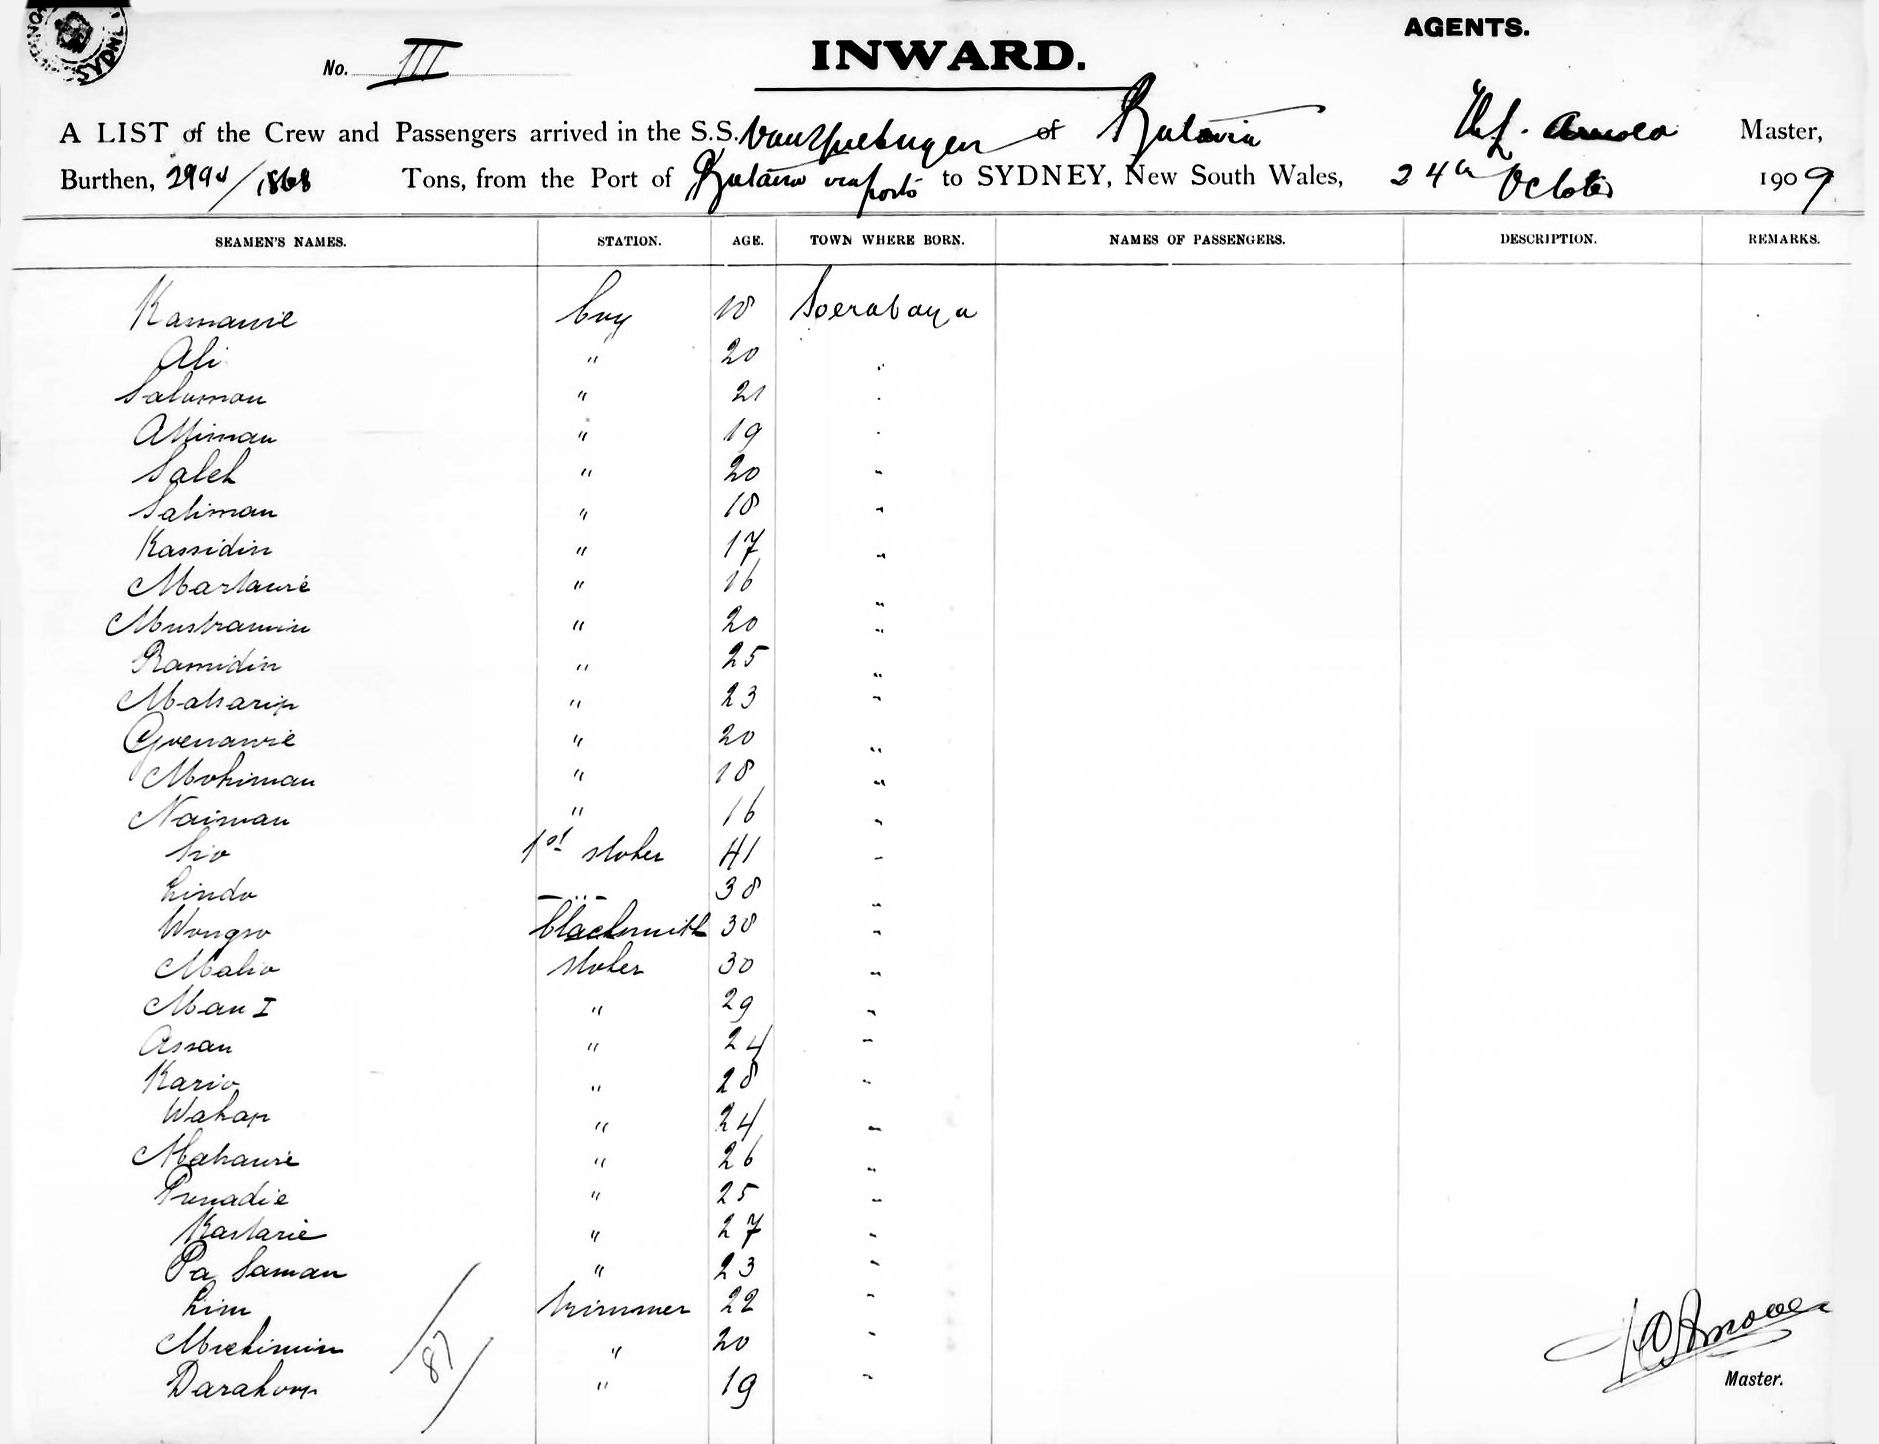 SYDNEY
AGENTS.
No. III
INWARD.
A LIST of the Crew and Passengers arrived in the S.S. Van Spilbergen of Batavia Arnold Master,
Burthen, 2994/1868 Tons, from the Port of Batavia via ports to SYDNEY, New South Wales, 24th October 1909
SEAMEN'S NAMES. STATION. AGE. TOWN WHERE BORN. NAMES OF PASSENGERS. DESCRIPTION. REMARKS.
Kamawie boy 18 Soerabaya
Ali " 20 "
Saluman " 21 "
Attiman " 19 "
Saleh " 20 "
Saliman " 18 "
Kassidin " 17 "
Martawie " 16 "
Mustramin " 20 "
Ramidin " 25 "
Matsarip " 23 "
Goenawie " 20 "
Mohiman " 18 "
Naiman " 16 "
Sio 1st stoker 41 "
Lindo - " - 38 "
Wongso blacksmith 38 "
Malio stoker 30 "
Man I " 29 "
Assan " 24 "
Kario " 28 "
Wahap " 24 "
Mahawie " 26 "
Prunadie " 25 "
Kastarie " 27 "
Pa Saman " 23 "
Lim trimmer 22 "
Mochimin " 20 "
Darahom " 19 "
87
Master.